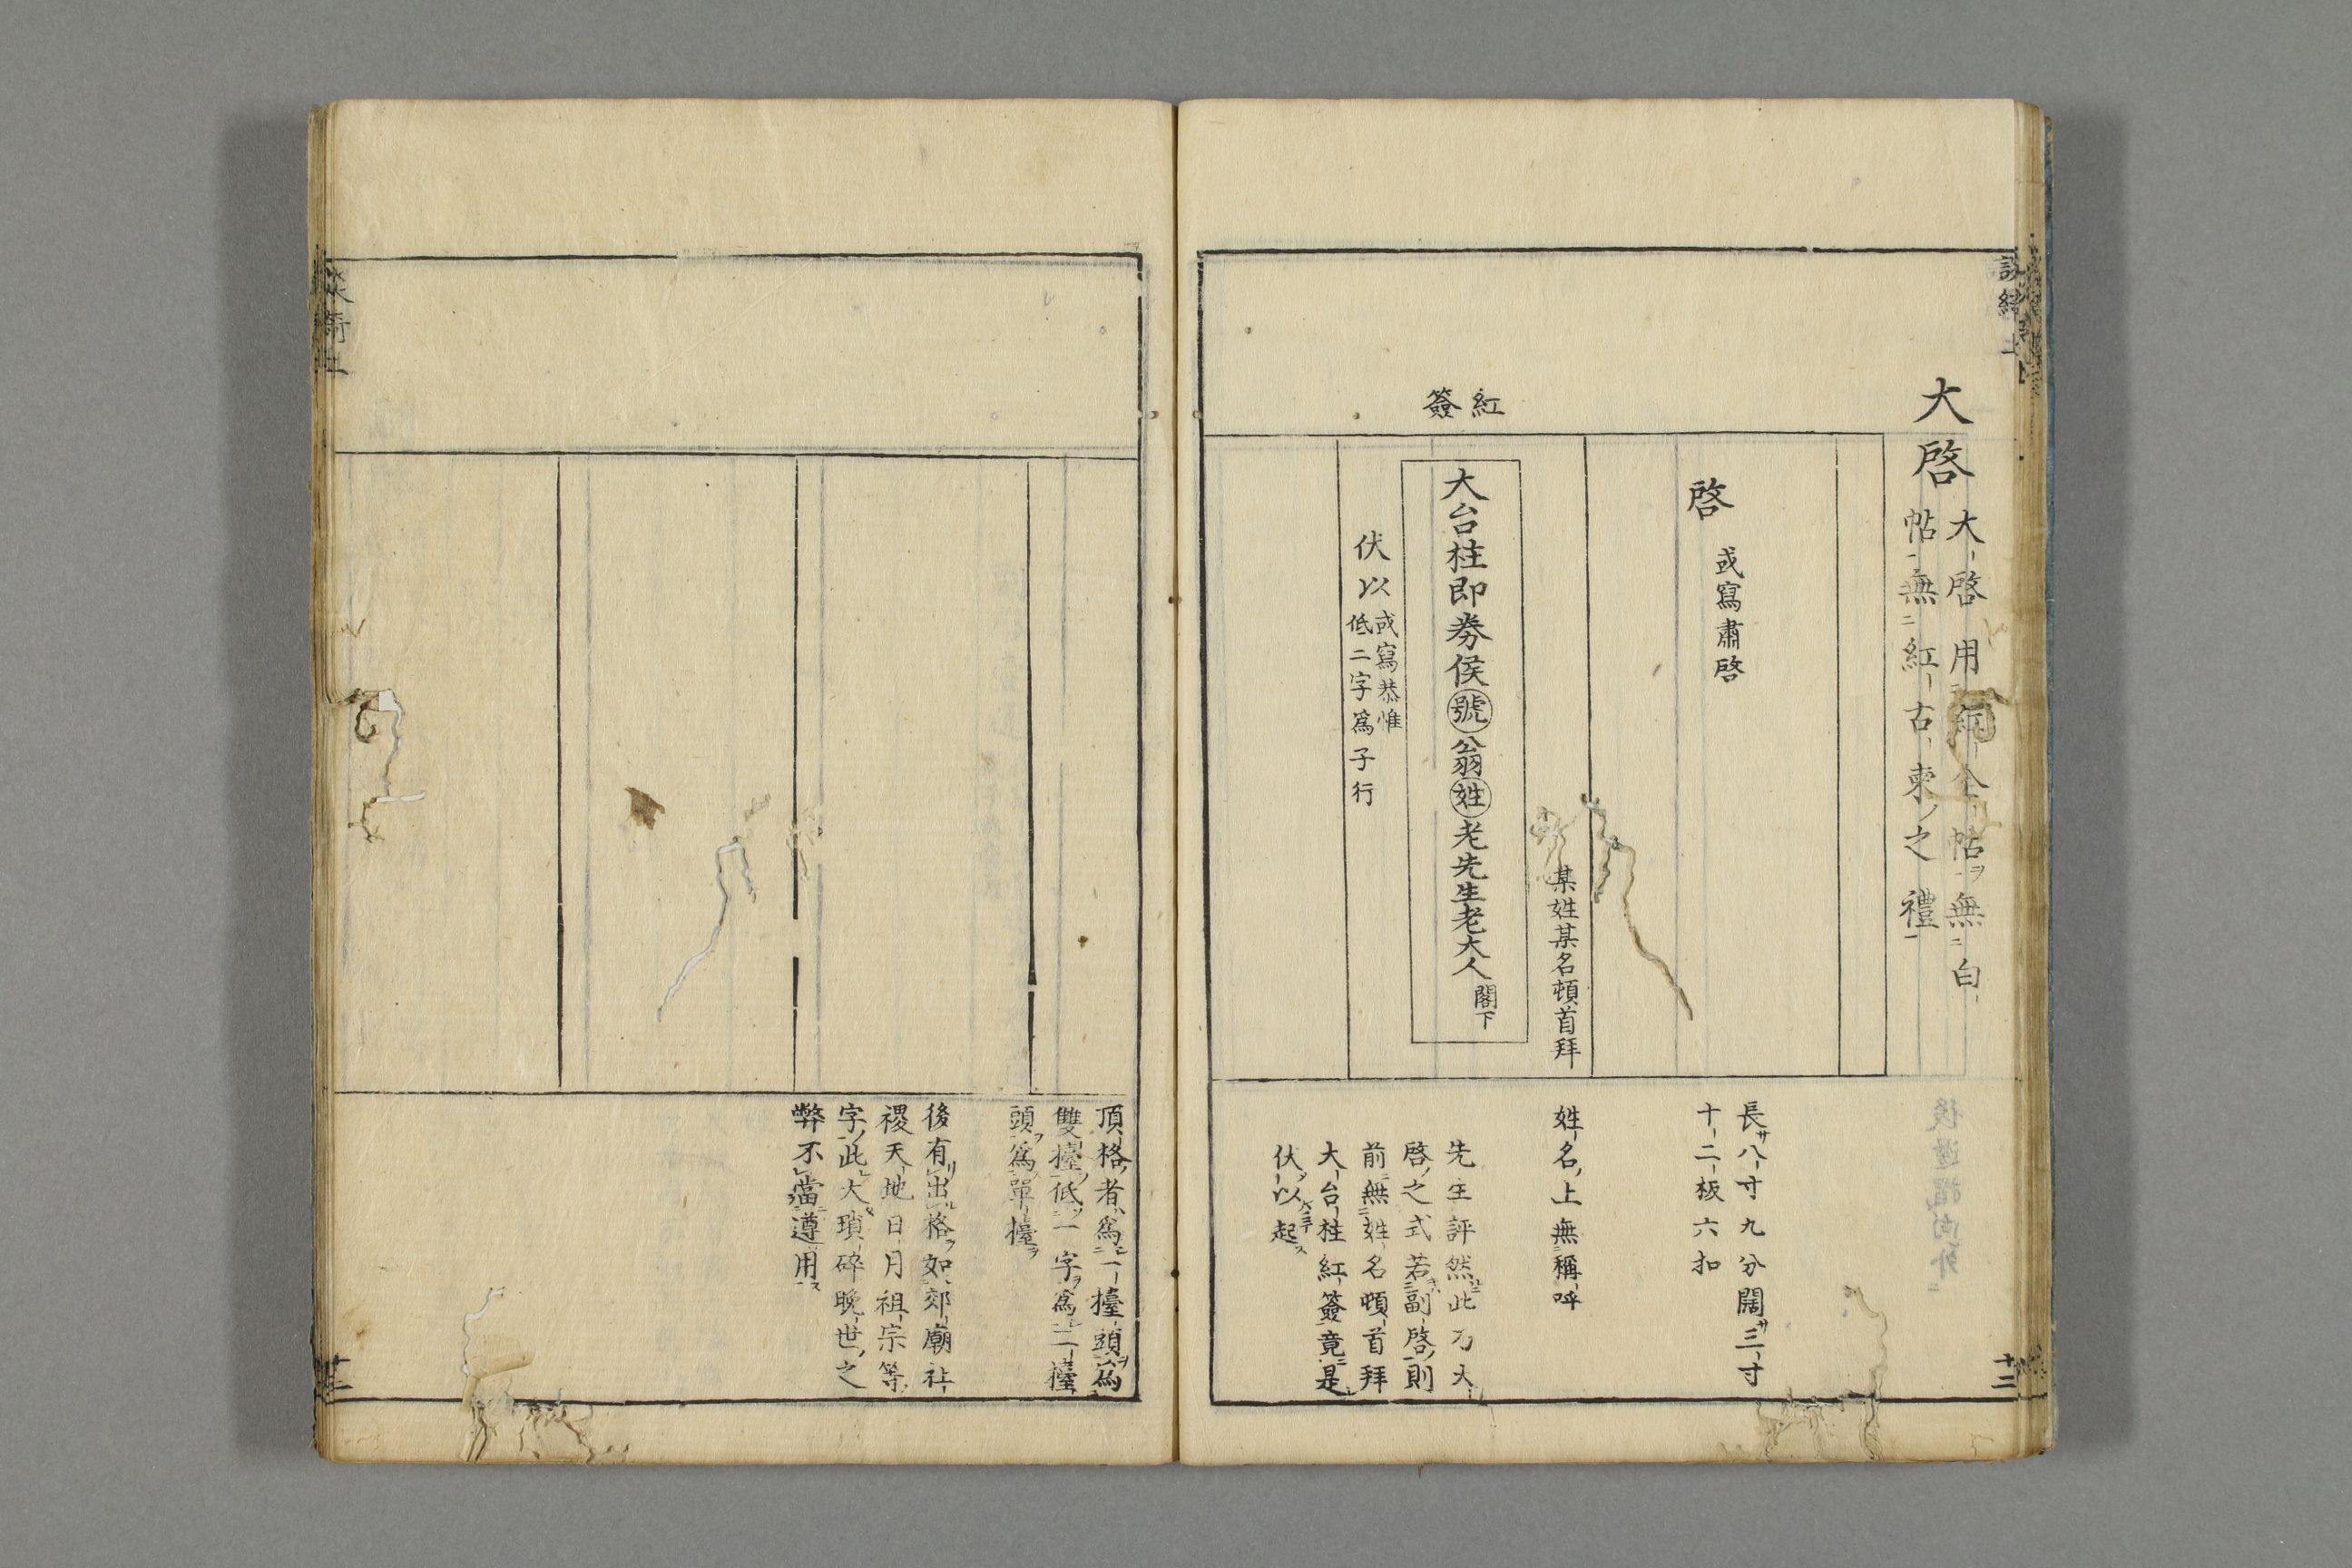 大啓
大啓用紅全帖無白
帖無紅古柬之禮
啓
或寫肅啓
長八寸九分闊三寸
十二板六扣
某姓某名頓首拜
姓名上無稱呼
紅
簽
大台柱即劵侯號翁姓老先生老大人閣下
伏以
或寫恭惟
低二字爲子行
先生評然此乃大
啓之式若副啓則
前無姓名頓首拜
大台柱紅簽竟是
伏以起
十二
頂格者爲一擡頭爲
雙擡低一字爲二擡
頭爲單擡
後有出格如郊廟社
稷天地日月祖宗等
字此大瑣碎晚世之
弊不當遵用